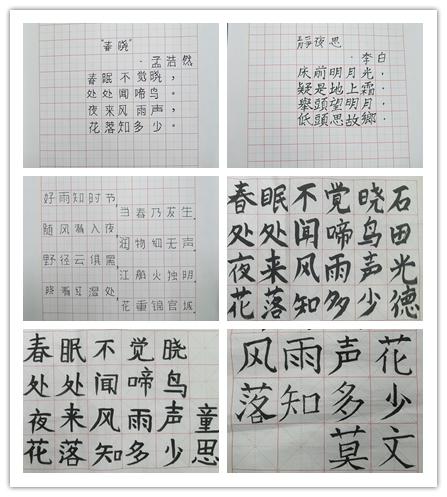 "春晓"
·孟浩然
春眠不觉晓，
处处闻啼鸟。
夜来风雨声，
花落知多少。
靜夜思
·李白
床前明月光，
疑是地上霜.
舉頭望明月，
低頭思故鄉.
好雨知时节,
当春乃发生
随风潜入夜
润物细无声
野径云俱黑
江船火独明
晓看红湿处
花重锦官城
春眠不觉晓石
处处闻啼鸟田
夜来风雨声光
花落知多少德
春眠不觉晓
处处闻啼鸟
夜来风雨声童
花落知多少思
风雨声花
落知多少
莫文